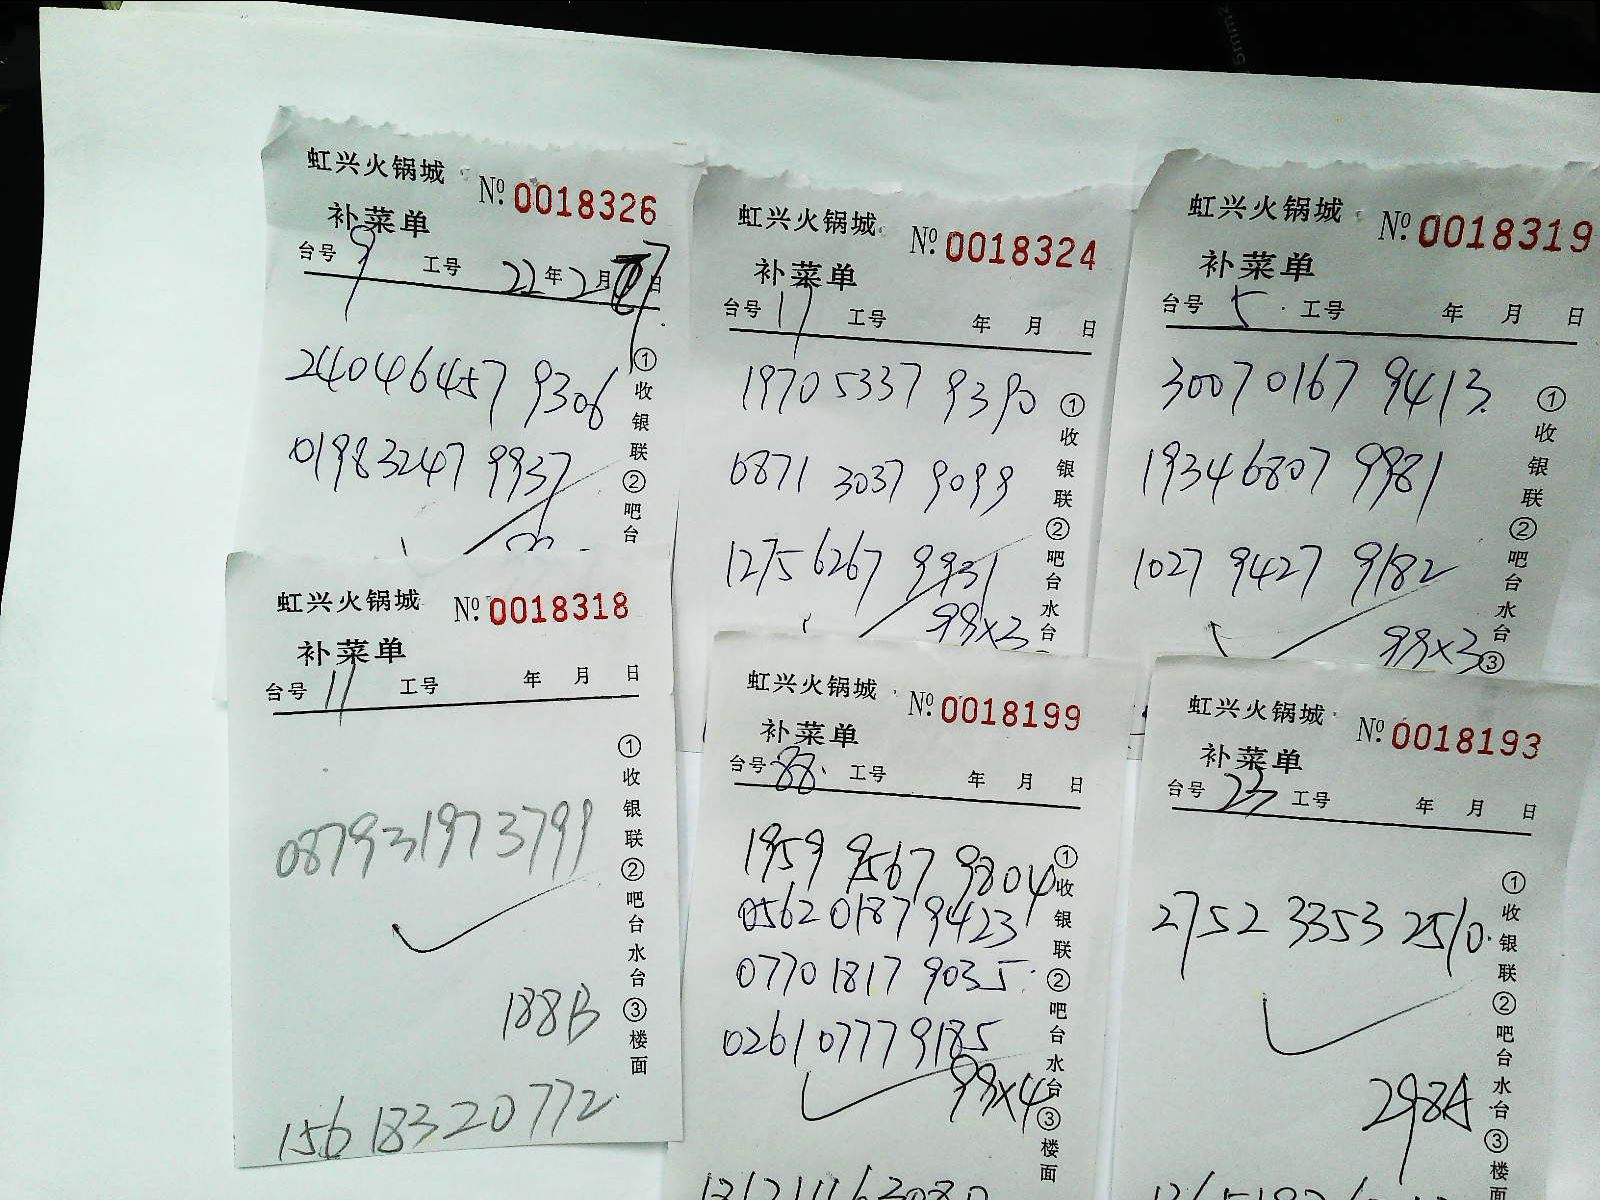 虹兴火锅城 № 0018326
补菜单
台号 9 工号 22年2月7日
24046457 9306
01983247 9937
①收银联②吧台
虹兴火锅城 № 0018324
补菜单
台号 17 工号 年 月 日
19705337 9390
0871 3037 9099
1275 6267 9931
99×3
①收银联②吧台水台
虹兴火锅城 № 0018319
补菜单
台号 5 工号 年 月 日
30070167 9413
19346807 9981
1027 9427 9182
99×3
①收银联②吧台水台③
虹兴火锅城 № 0018318
补菜单
台号 11 工号 年 月 日
087931973799
188B
15618320772
①收银联②吧台水台③楼面
虹兴火锅城 № 0018199
补菜单
台号 88 工号 年 月 日
1959 9567 9804
0562 0187 9423
0770 1817 9035
0261 0777 9185
99×4
①收银联②吧台水台③楼面
虹兴火锅城 № 0018193
补菜单
台号 23 工号 年 月 日
2752 3353 2510
298A
①收银联②吧台水台③楼面